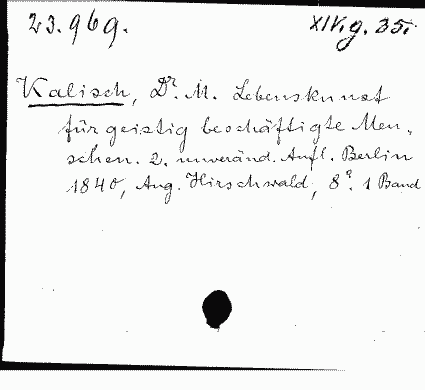 23.969.
XIV.g.35.
Kalisch, Dr. M. Lebenskunst
für geistig beschäftigte Men-
schen. 2. unveränd. Aufl. Berlin
1840, Aug. Hirschwald, 8º. 1 Band